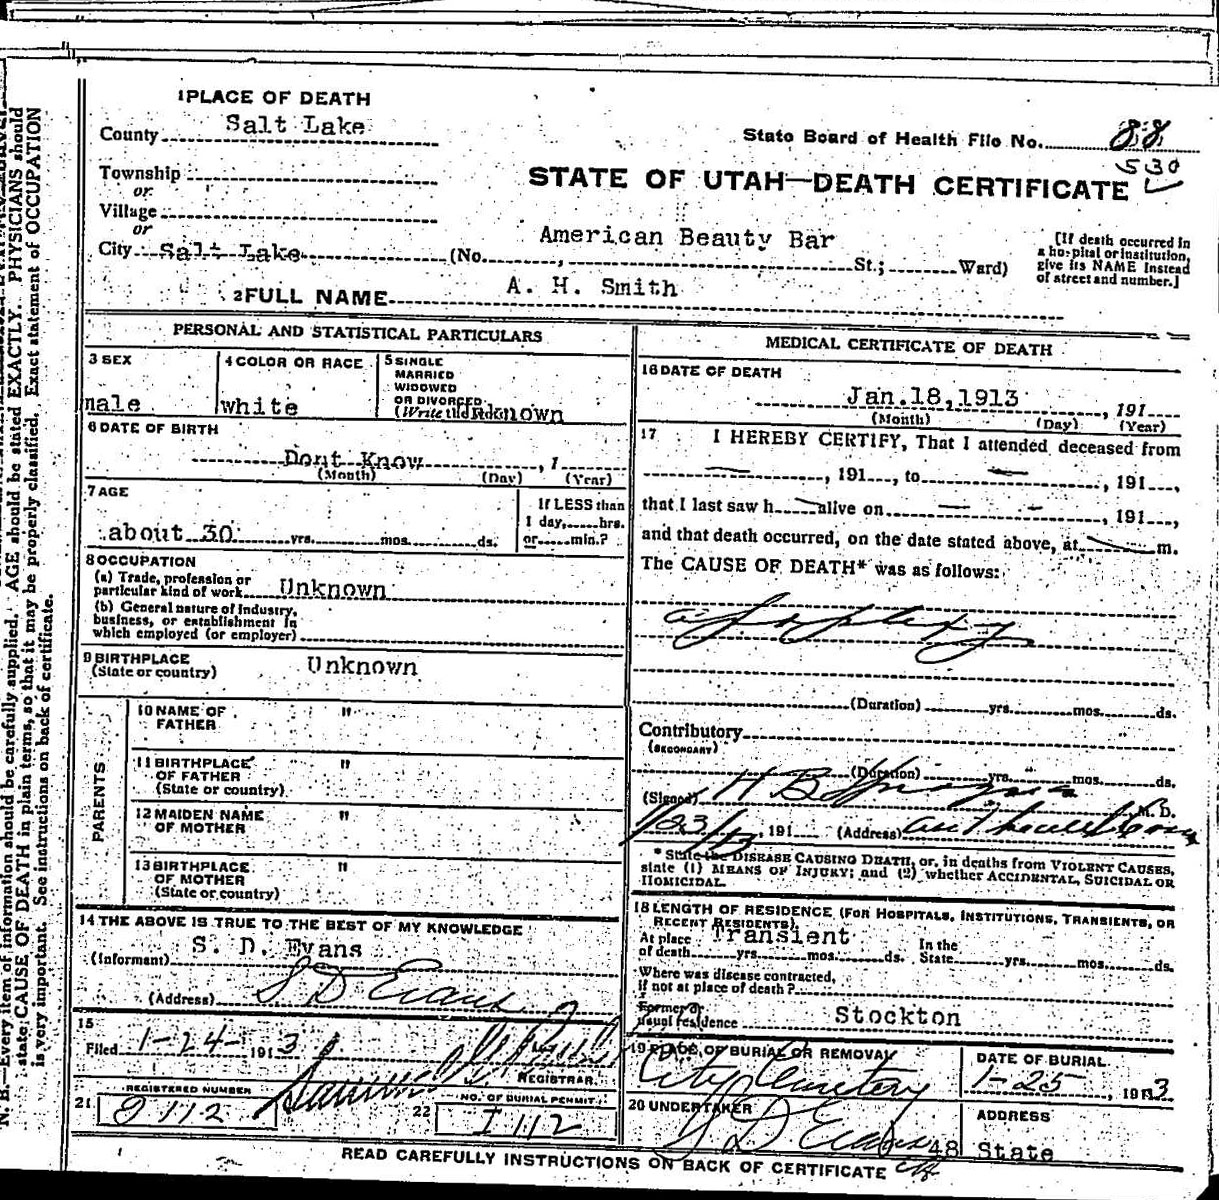 1 PLACE OF DEATH
County Salt Lake
State Board of Health File No. 88
530
Township
or
Village
or
STATE OF UTAH—DEATH CERTIFICATE
City Salt Lake (No. , American Beauty Bar St.; Ward)
[If death occurred in
a hospital or institution,
give its NAME instead
of street and number.]
2 FULL NAME A. H. Smith
PERSONAL AND STATISTICAL PARTICULARS
3 SEX
male
4 COLOR OR RACE
white
5 SINGLE
MARRIED
WIDOWED
OR DIVORCED
(Write the Unknown
6 DATE OF BIRTH
Dont Know , 1
(Month) (Day) (Year)
7 AGE
about 30 yrs. mos. ds.
If LESS than
1 day, hrs.
or min.?
8 OCCUPATION
(a) Trade, profession or
particular kind of work Unknown
(b) General nature of Industry,
business, or establishment in
which employed (or employer)
9 BIRTHPLACE
(State or country) Unknown
PARENTS
10 NAME OF
FATHER "
11 BIRTHPLACE
OF FATHER
(State or country) "
12 MAIDEN NAME
OF MOTHER "
13 BIRTHPLACE
OF MOTHER
(State or country) "
14 THE ABOVE IS TRUE TO THE BEST OF MY KNOWLEDGE
(Informant) S. D. Evans
(Address) S D Evans
15
Filed 1-24- 1913
REGISTRAR
REGISTERED NUMBER
21
NO. OF BURIAL PERMIT
22 I 112
MEDICAL CERTIFICATE OF DEATH
16 DATE OF DEATH
Jan.18,1913 , 191
(Month) (Day) (Year)
17 I HEREBY CERTIFY, That I attended deceased from
— , 191 , to — , 191 ,
that I last saw h — alive on — — , 191 ,
and that death occurred, on the date stated above, at m.
The CAUSE OF DEATH* was as follows:
apoplexy
(Duration) yrs. mos. ds.
Contributory
(SECONDARY)
(Duration) yrs. mos. ds.
(Signed) H B M. D.
1/23/13 , 191 (Address)
* State the DISEASE CAUSING DEATH, or, in deaths from VIOLENT CAUSES,
state (1) MEANS OF INJURY; and (2) whether ACCIDENTAL, SUICIDAL OR
HOMICIDAL.
18 LENGTH OF RESIDENCE (FOR HOSPITALS, INSTITUTIONS, TRANSIENTS, OR
RECENT RESIDENTS).
At place Transient In the
of death yrs. mos. ds. State yrs. mos. ds.
Where was disease contracted,
if not at place of death?
Former or
usual residence Stockton
19 PLACE OF BURIAL OR REMOVAL
City Cemetery
DATE OF BURIAL
1-25 , 1913
20 UNDERTAKER
S D Evans
ADDRESS
48 State
READ CAREFULLY INSTRUCTIONS ON BACK OF CERTIFICATE
N. B.—Every item of information should be carefully supplied. AGE should be stated EXACTLY. PHYSICIANS should
state CAUSE OF DEATH in plain terms, so that it may be properly classified. Exact statement of OCCUPATION
is very important. See instructions on back of certificate.